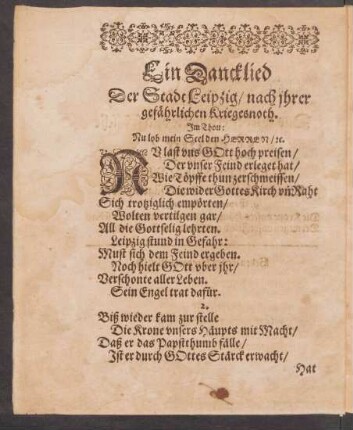 Ein Dancklied
Der Stadt Leipzig/ nach jhrer
gefährlichen Kriegesnoth.
Im Thon:
Nu lob mein Seel den HERREN/ ꝛc.
NV last vns GOtt hoch preisen/
Der vnser Feind erleget hat/
Wie Töpffe thun zerschmeissen/
Die wider Gottes Kirch vñ Raht
Sich trotziglich empörten/
Wolten vertilgen gar/
All die Gottselig lehrten.
Leipzig stund in Gefahr:
Must sich dem Feind ergeben.
Noch hielt GOtt vber jhr/
Verschonte aller Leben.
Sein Engel trat dafür.
2.
Biß wieder kam zur stelle
Die Krone vnsers Häupts mit Macht/
Daß er das Papstthumb fälle/
Ist er durch GOttes Stärck erwacht/
Hat